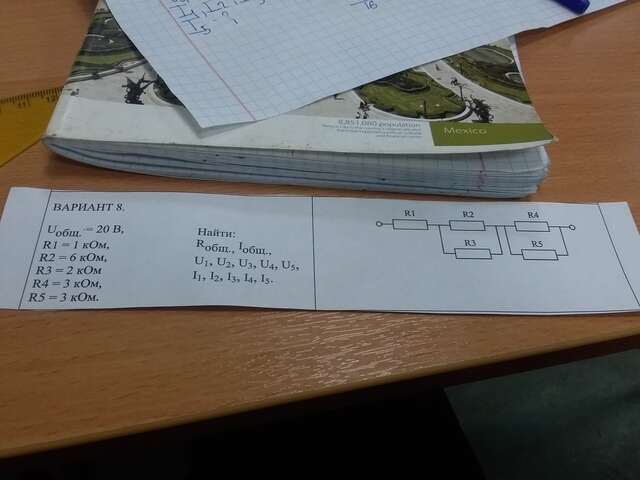 8,851,080 population
Mexico
ВАРИАНТ 8.
Uобщ. = 20 В,
R1 = 1 кОм,
R2 = 6 кОм,
R3 = 2 кОм
R4 = 3 кОм,
R5 = 3 кОм.
Найти:
Rобщ., Iобщ.,
U1, U2, U3, U4, U5,
I1, I2, I3, I4, I5.
R1
R2
R4
R3
R5